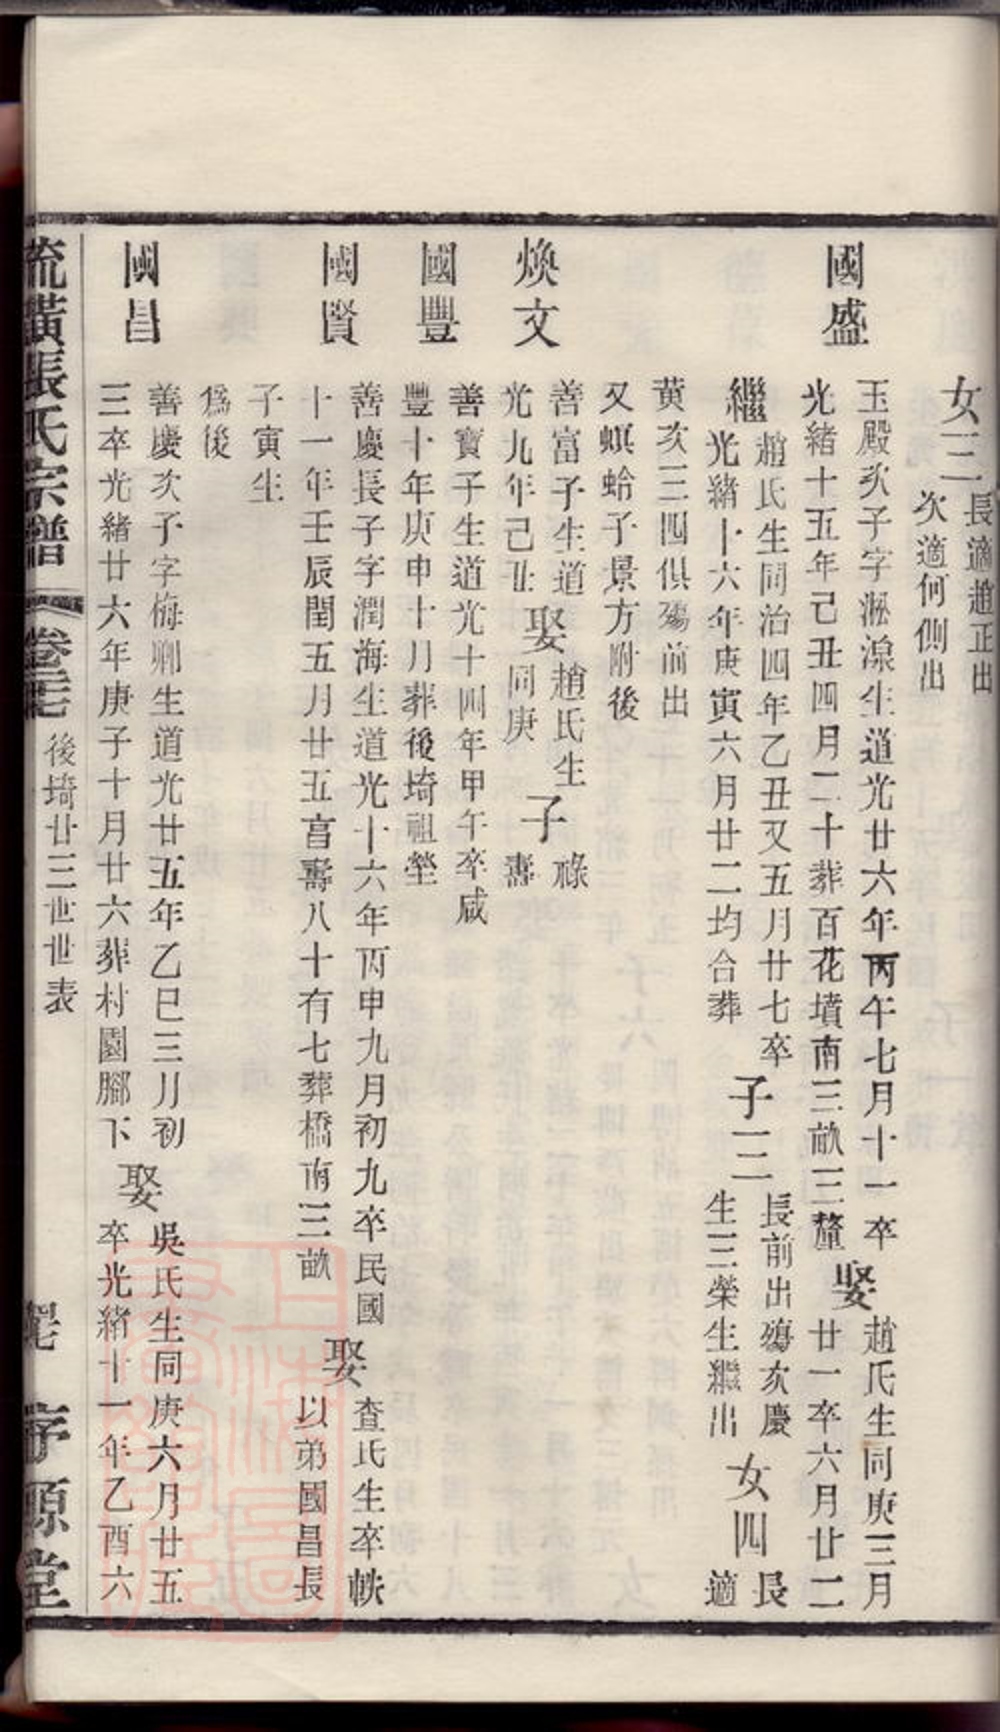 女三
長適趙正出
次適何側出
國盛
玉殿次子字淞湶生道光廿六年丙午七月十一卒
光緒十五年己丑四月二十葬百花墳南三畝三釐
娶
趙氏生同庚三月
廿一卒六月廿二
繼
趙氏生同治四年乙丑又五月廿七卒
光緒十六年庚寅六月廿二均合葬
子三
長前出殤次慶
生三榮生繼出
女四
長適
黄次三四俱殤前出
又螟蛉子景方附後
煥文
善富子生道
光九年己丑
娶
趙氏生
同庚
子
祿
壽
國豐
善寶子生道光十四年甲午卒咸
豐十年庚申十月葬後埼祖塋
國賢
善慶長子字潤海生道光十六年丙申九月初九卒民國
十一年壬辰閏五月廿五亯壽八十有七葬橋南三畝
娶
査氏生卒軼
以弟國昌長
子寅生
爲後
國昌
善慶次子字梅卿生道光廿五年乙巳三月初
三卒光緒廿六年庚子十月廿六葬村園腳下
娶
吳氏生同庚六月廿五
卒光緒十一年乙酉六
流璜張氏宗譜
卷三七
後埼廿三世世表
序源堂